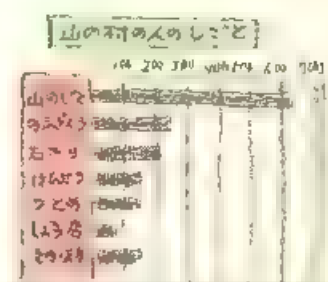 山の村の人のしごと
100 200 300 400 500 600 700人
山しごと
のうぎょう
つとめ
しょう店
そのほか